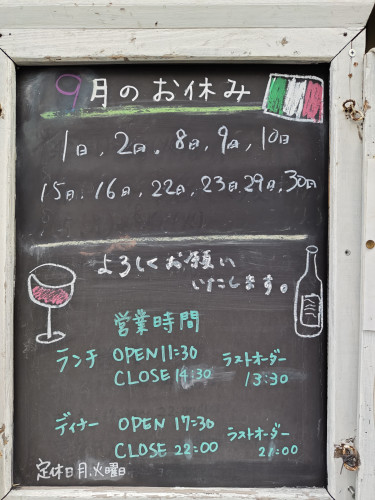 9月のお休み
1日、2日、8日、9日、10日
15日、16日、22日、23日、29日、30日
よろしくお願い
いたします。
営業時間
ランチ OPEN 11:30 ラストオーダー
CLOSE 14:30 13:30
ディナー OPEN 17:30 ラストオーダー
CLOSE 22:00 21:00
定休日月、火曜日